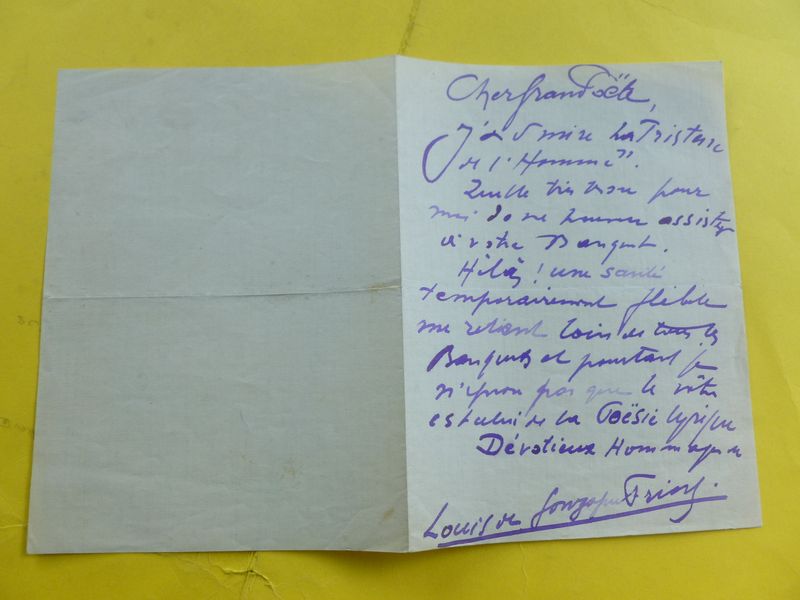 Cher Grand Poëte,
J'admire La Tristesse
de l'Homme".
Quelle tristesse pour
moi de ne pouvoir assister
à votre Banquet.
Hélas! une santé
temporairement flébile
me retient loin de tous les
Banquets et pourtant je
n'ignore pas que le vôtre
est celui de la Poësie lyrique
Dévotieux Hommages de
Louis de Gonzague Frick.